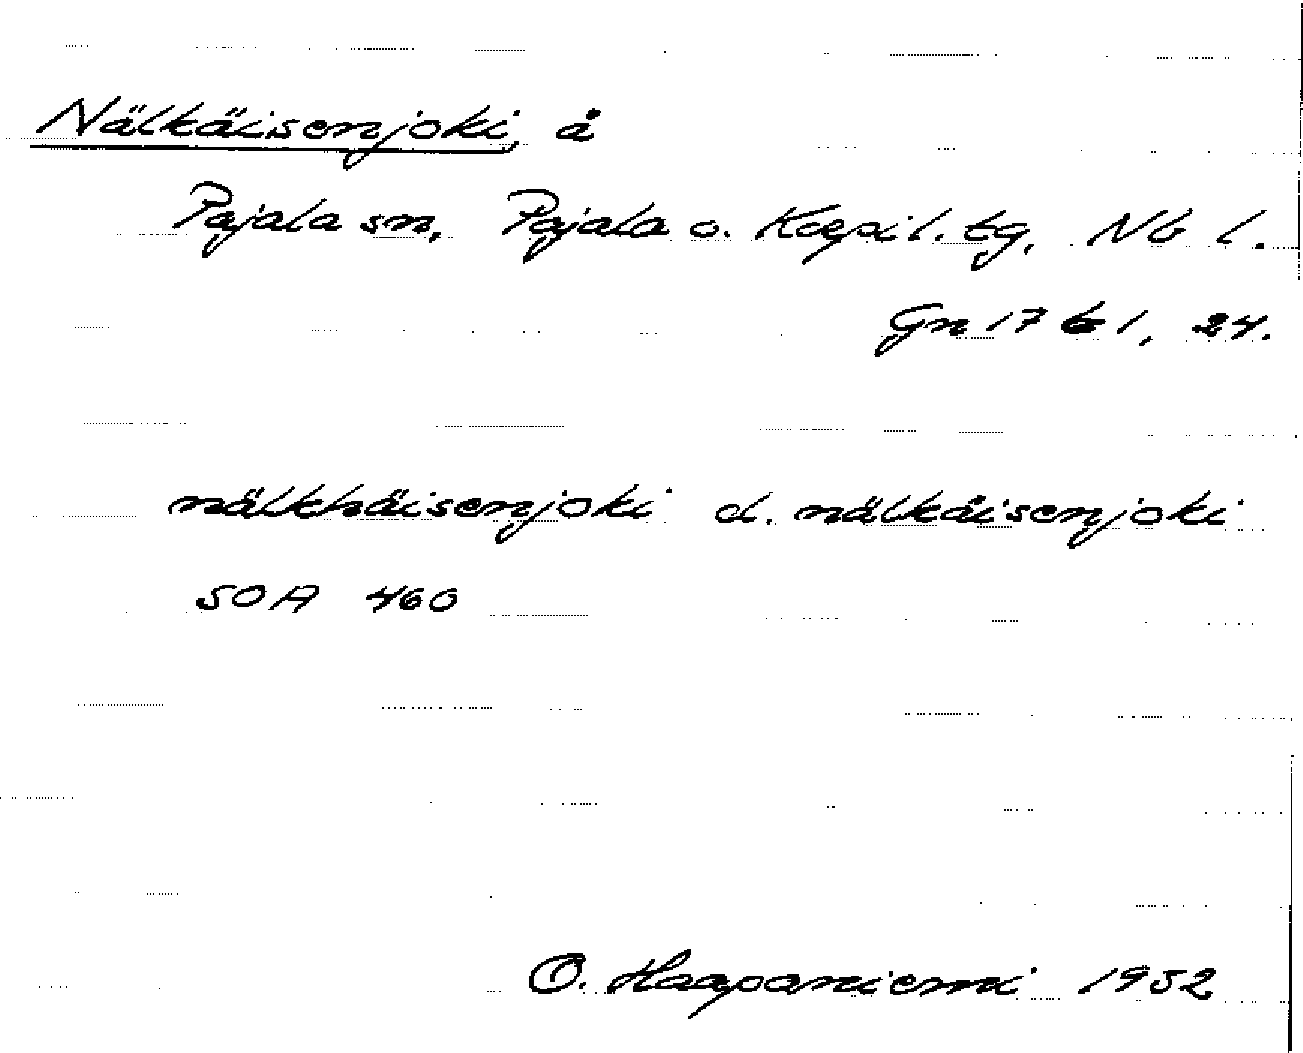 Nälkäisenjoki, å
Pajala sn, Pajala o. Korpil. tg, Nb l.
Gn 17 b 1, 24.
nälkhäisenjoki d. nälkäisenjoki
SOA 460
O. Haapaniemi 1952